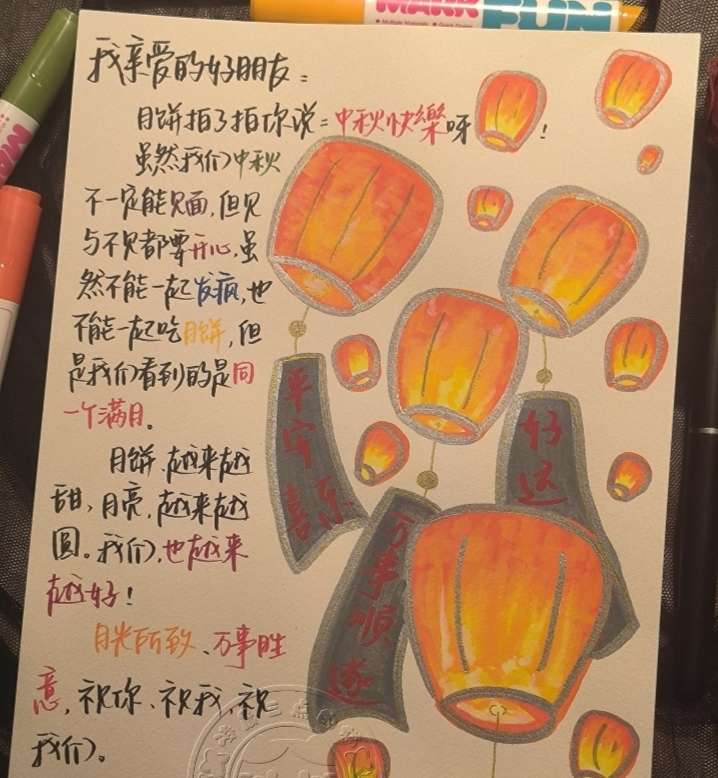 MARK
FUN
我亲爱的好朋友：
月饼拍了拍你说：中秋快樂呀！
虽然我们中秋
不一定能见面，但见
与不见都要开心，虽
然不能一起发疯，也
不能一起吃月饼，但
是我们看到的是同
一个满月。
月饼，越来越
甜，月亮，越来越
圆。我们，也越来
越好！
月光所致、万事胜
意，祝你、祝我、祝
我们。
平安喜乐
好运
万事顺遂